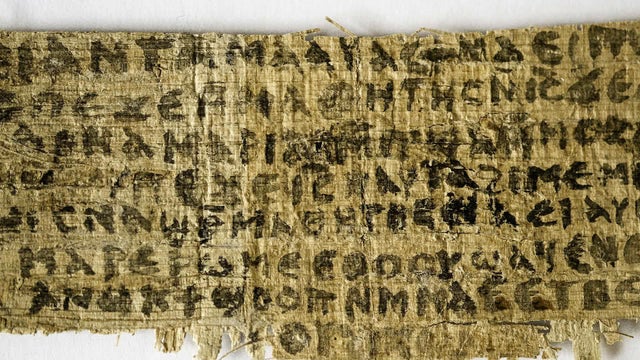 ⲉⲓ ⲁⲛ ⲧⲁⲙⲁⲁⲩ ⲁⲥϯ ⲛⲁⲉⲓ ⲡ
ⲡⲉϫⲉ ⲙⲙⲁⲑⲏⲧⲏⲥ ⲛⲓⲥ ϫⲉ
ⲁⲣⲛⲁ ⲙⲁⲣⲓⲁⲙ ⲙⲡϣⲁ ⲙⲙⲟⲥ
ⲡⲉϫⲉ ⲓⲥ ⲛⲁⲩ ⲧⲁϩⲓⲙⲉ ⲙⲛ
ⲥⲛⲁϣⲣⲙⲁⲑⲏⲧⲏⲥ ⲛⲁⲉⲓ ⲁⲩ
ⲙⲁⲣⲉⲣⲱⲙⲉ ⲉⲑⲟⲟⲩ ϣⲁϥⲉ ⲛⲉ
ⲁⲛⲟⲕ ϯϣⲟⲟⲡ ⲛⲙⲙⲁⲥ ⲉⲧⲃⲉ